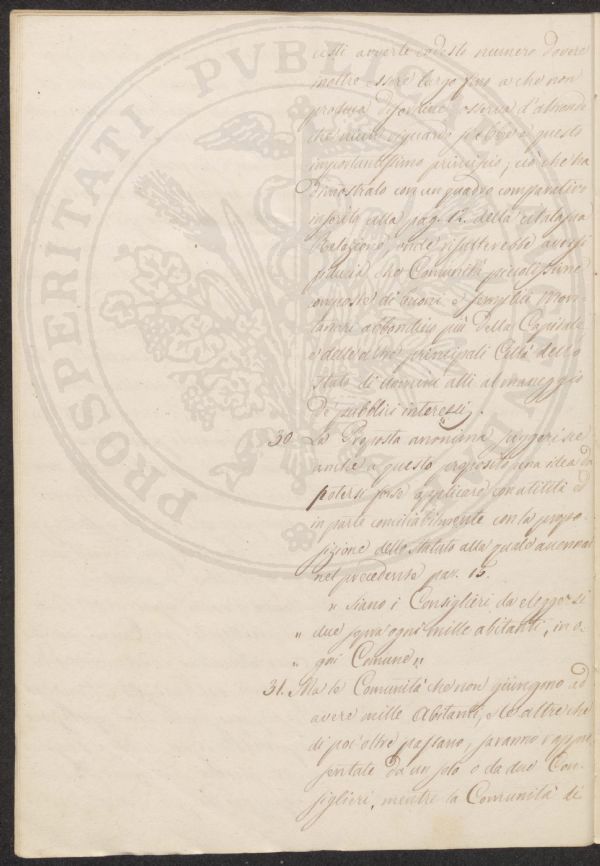 cesti avverte codesto numero dovere
inoltre essere largo fino a che non
produca disordine, osserva d'altronde
importantissimo principio; ciò che ha
dimostrato con un quadro comparativo
inserito alla pag. 12. della citata sua
Relazione onde risulterebbe aversi
che Comunità piccolissime
composte di buoni e semplici Mon-
tanari abbondino più della Capitale
e delle altre principali Città dello
Stato di uomini atti al maneggio
de' pubblici interessi.
30. La Proposta anonima suggerisce
anche a questo proposito una idea da
potersi forse applicare con utilità ed
in parte conciliabilmente con la propo-
sizione dello Statuto alla quale accennai
nel precedente par. 15.
" Siano i Consiglieri da eleggersi
" due sopra ogni mille abitanti, in o-
" gni Comune "
31. Ma le Comunità che non giungono ad
avere mille Abitanti, e le altre che
di poi oltre passano, saranno rappre-
sentate da un solo o da due Con-
siglieri, mentre la Comunità di
PROSPERITATI PVBLICAE